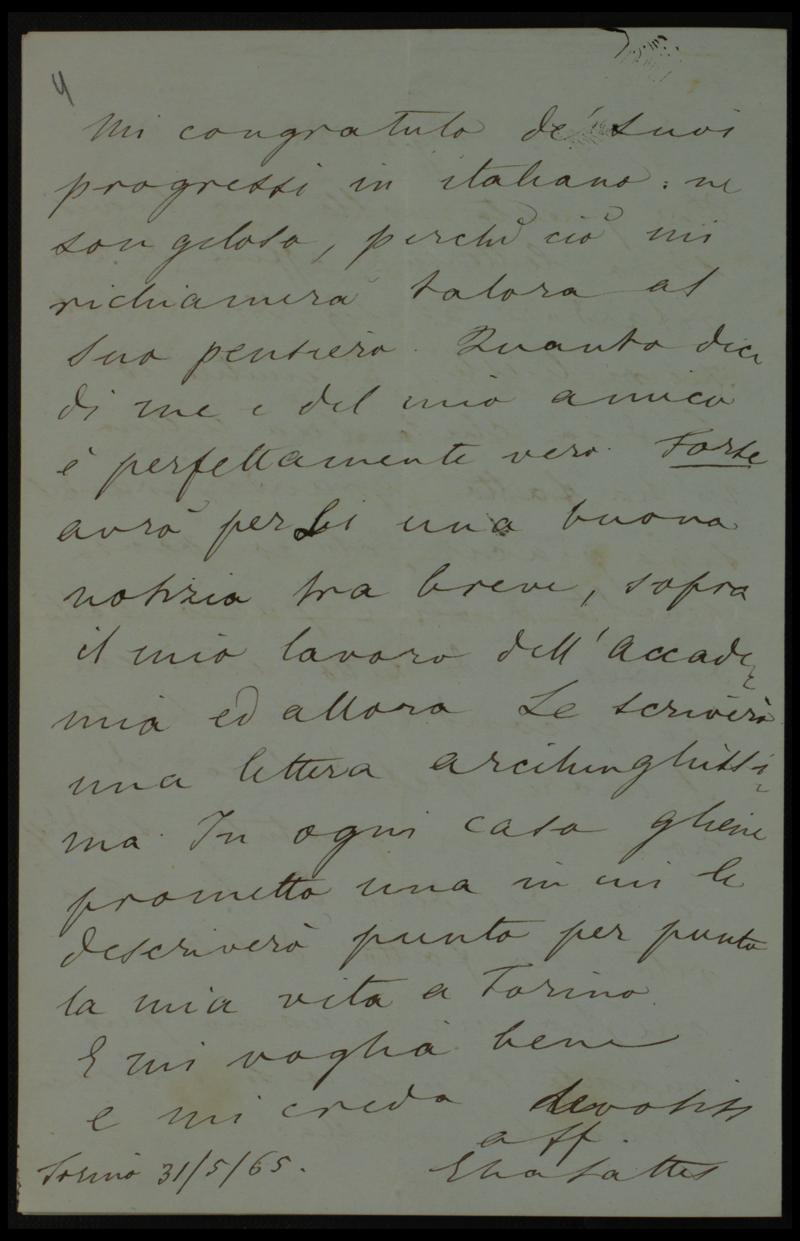 4
Mi congratulo de' suoi
progressi in italiano: ne
son geloso, perchè ciò mi
richiamerà talora al
suo pensiero. Quanto dice
di me e del mio amico
è perfettamente vero. Forse
avrò per Lei una buona
notizia tra breve, sopra
il mio lavoro dell'Accade=
mia ed allora Le scriverò
una lettera arcilunghissi=
ma. In ogni caso gliene
prometto una in cui le
descriverò punto per punto
la mia vita a Torino.
E mi voglia bene
e mi creda devotiss
aff.
Torino 31/5/65.
Elia Lattes